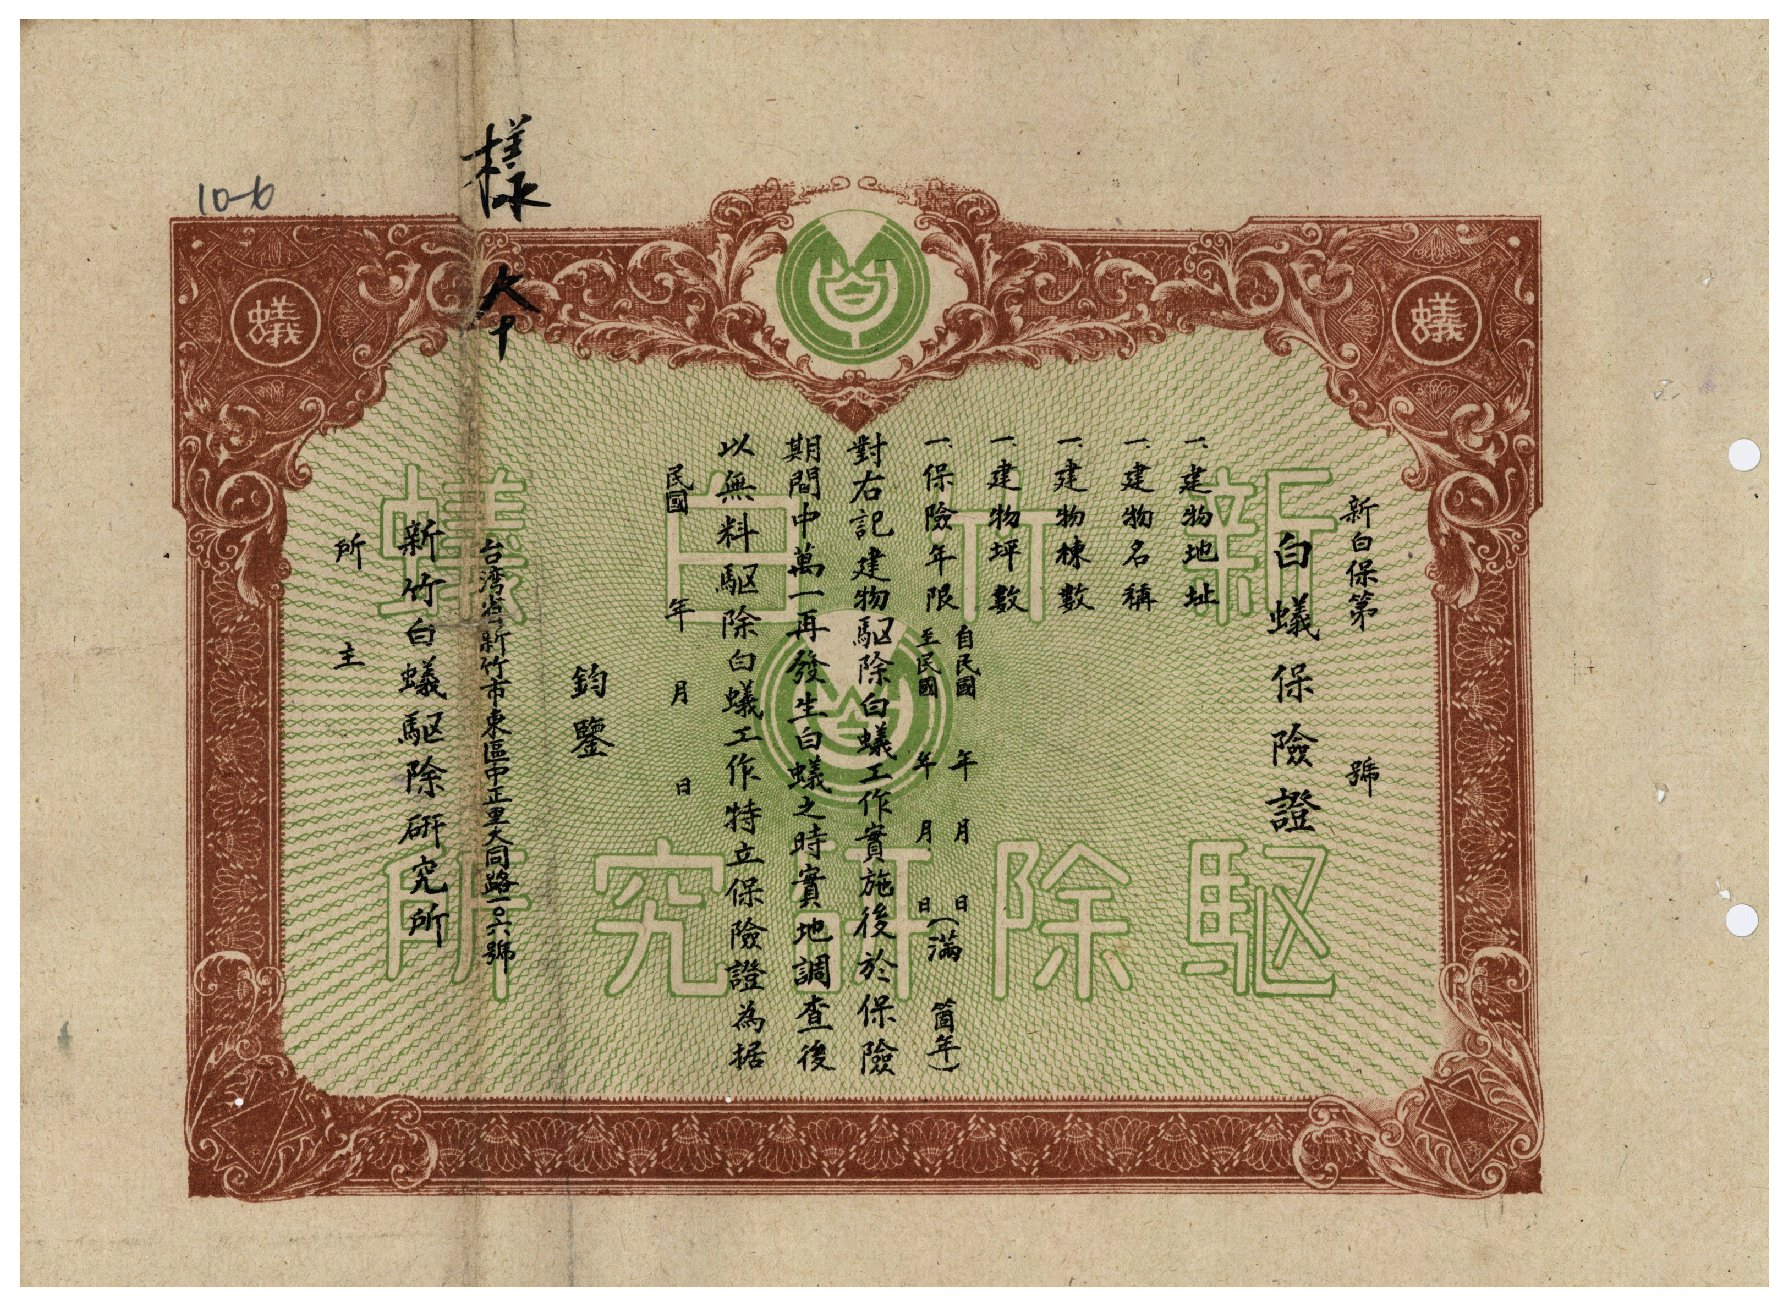 新白保第　　號
白蟻保險證
一、建物地址
一、建物名稱
一、建物棟數
一、建物坪數
一、保險年限 自民國　年　月　日
至民國　年　月　日 (滿　箇年)
對右記建物驅除白蟻工作實施後於保險
期間中萬一再發生白蟻之時實地調查後
以無料驅除白蟻工作特立保險證為据
民國　年　月　日
鈞鑒
台湾省新竹市東區中正里大同路一〇六號
新竹白蟻驅除研究所
所主
樣本
10-6
蟻
蟻
新竹白蟻
驅除研究所